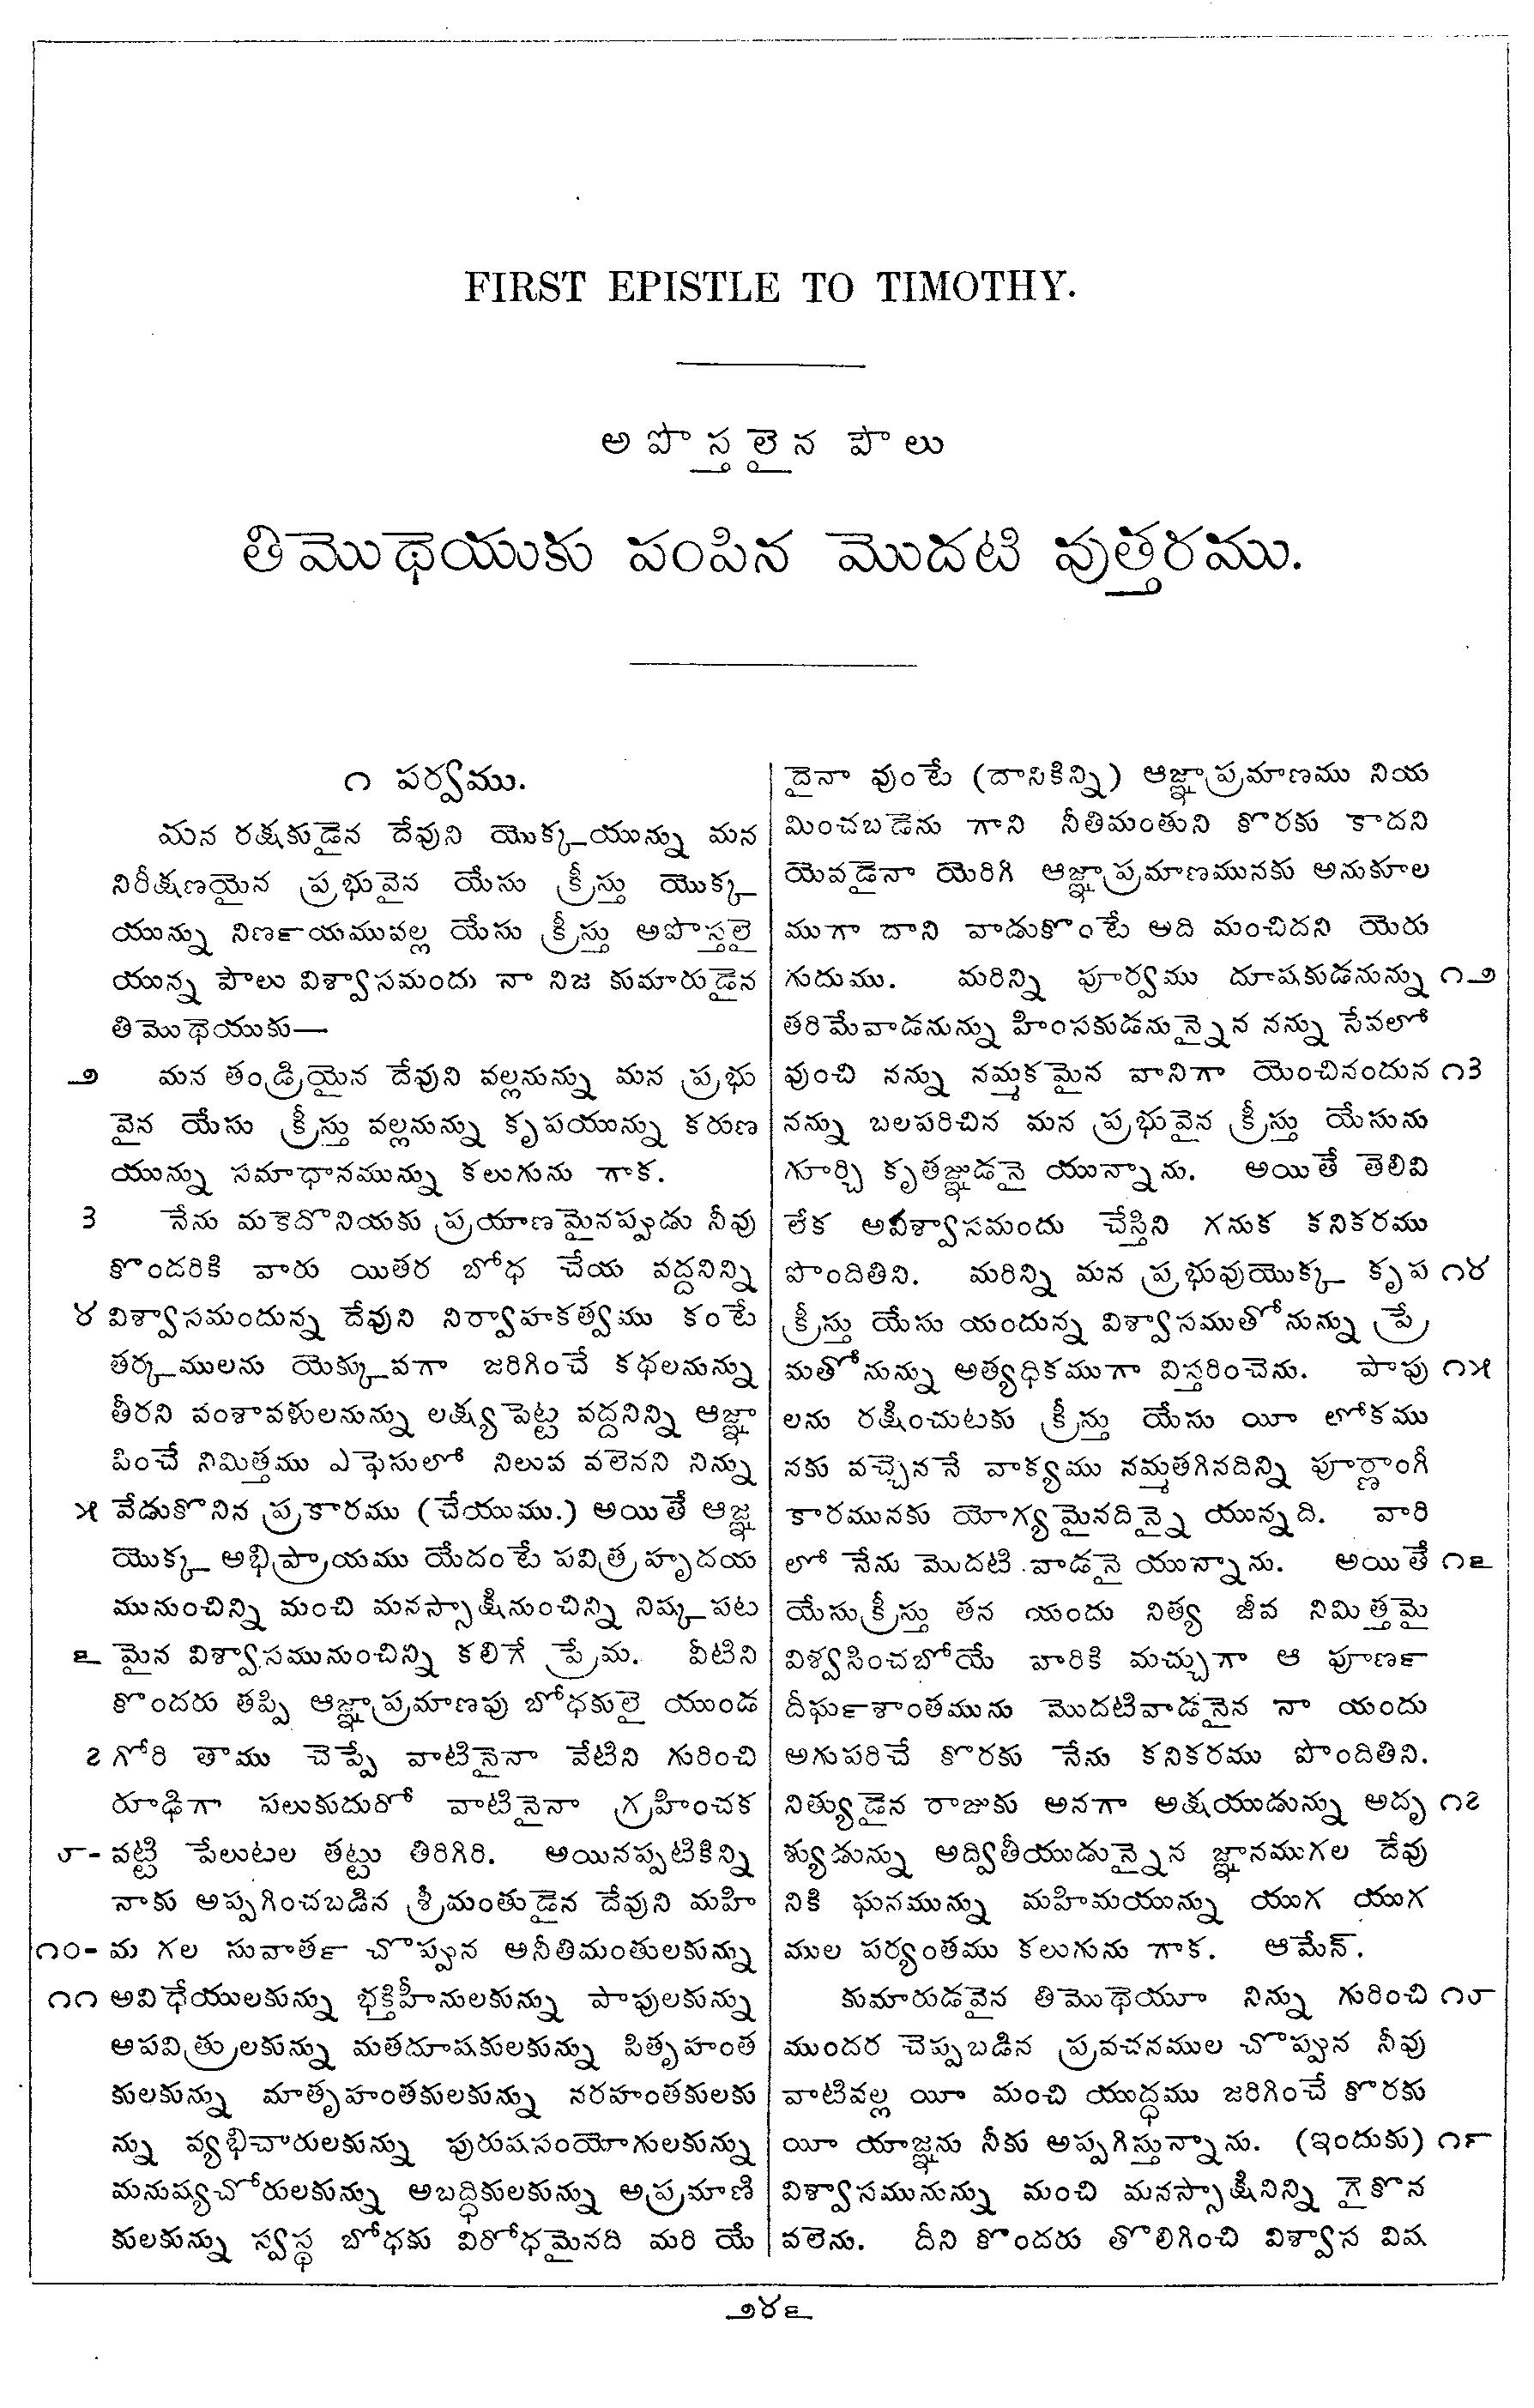 FIRST EPISTLE TO TIMOTHY.
అపొస్తలైన పౌలు
తిమొథెయుకు పంపిన మొదటి వుత్తరము.
౧ పర్వము.
మన రక్షకుడైన దేవుని యొక్కయున్ను మన
నిరీక్షణయైన ప్రభువైన యేసు క్రీస్తు యొక్క
యున్ను నిణ౯యమువల్ల యేసు క్రీస్తు అపొస్తలై
యున్న పౌలు విశ్వాసమందు నా నిజ కుమారుడైన
తిమొథెయుకు—
౨ మన తండ్రియైన దేవుని వల్లనున్ను మన ప్రభు
వైన యేసు క్రీస్తు వల్లనున్ను కృపయున్ను కరుణ
యున్ను సమాధానమున్ను కలుగును గాక.
౩ నేను మకెదొనియకు ప్రయాణమైనప్పుడు నీవు
కొందరికి వారు యితర బోధ చేయ వద్దనిన్ని
౪ విశ్వాసమందున్న దేవుని నిర్వాహకత్వము కంటే
తర్కములను యెక్కువగా జరిగించే కథలనున్ను
తీరని వంశావళులనున్ను లక్ష్యపెట్ట వద్దనిన్ని ఆజ్ఞా
పించే నిమిత్తము ఎఫెసులో నిలువ వలెనని నిన్ను
౫ వేడుకొనిన ప్రకారము (చేయుము.) అయితే ఆజ్ఞ
యొక్క అభిప్రాయము యేదంటే పవిత్ర హృదయ
మునుంచిన్ని మంచి మనస్సాక్షినుంచిన్ని నిష్కపట
౬ మైన విశ్వాసమునుంచిన్ని కలిగే ప్రేమ. వీటిని
కొందరు తప్పి ఆజ్ఞాప్రమాణపు బోధకులై యుండ
౭ గోరి తాము చెప్పే వాటినైనా వేటిని గురించి
రూఢిగా పలుకుదురో వాటినైనా గ్రహించక
౮- వట్టి పేలుటల తట్టు తిరిగిరి. అయినప్పటికిన్ని
నాకు అప్పగించబడిన శ్రీమంతుడైన దేవుని మహి
౧౦- మ గల సువాత౯ చొప్పున అనీతిమంతులకున్ను
౧౧ అవిధేయులకున్ను భక్తిహీనులకున్ను పాపులకున్ను
అపవిత్రులకున్ను మతదూషకులకున్ను పితృహంత
కులకున్ను మాతృహంతకులకున్ను నరహంతకులకు
న్ను వ్యభిచారులకున్ను పురుషసంయోగులకున్ను
మనుష్యచోరులకున్ను అబద్ధికులకున్ను అప్రమాణి
కులకున్ను స్వస్థ బోధకు విరోధమైనది మరి యే
దైనా వుంటే (దానికిన్ని) ఆజ్ఞాప్రమాణము నియ
మించబడెను గాని నీతిమంతుని కొరకు కాదని
యెవడైనా యెరిగి ఆజ్ఞాప్రమాణమునకు అనుకూల
ముగా దాని వాడుకొంటే అది మంచిదని యెరు
గుదుము. మరిన్ని పూర్వము దూషకుడనున్ను ౧౨
తరిమేవాడనున్ను హింసకుడనున్నైన నన్ను సేవలో
వుంచి నన్ను నమ్మకమైన వానిగా యెంచినందున ౧౩
నన్ను బలపరిచిన మన ప్రభువైన క్రీస్తు యేసును
గూర్చి కృతజ్ఞుడనై యున్నాను. అయితే తెలివి
లేక అవిశ్వాసమందు చేస్తిని గనుక కనికరము
పొందితిని. మరిన్ని మన ప్రభువుయొక్క కృప ౧౪
క్రీస్తు యేసు యందున్న విశ్వాసముతోనున్ను ప్రే
మతోనున్ను అత్యధికముగా విస్తరించెను. పాపు ౧౫
లను రక్షించుటకు క్రీస్తు యేసు యీ లోకము
నకు వచ్చెననే వాక్యము నమ్మతగినదిన్ని పూర్ణాంగీ
కారమునకు యోగ్యమైనదిన్నై యున్నది. వారి
లో నేను మొదటి వాడనై యున్నాను. అయితే ౧౬
యేసుక్రీస్తు తన యందు నిత్య జీవ నిమిత్తమై
విశ్వసించబోయే వారికి మచ్చుగా ఆ పూణ౯
దీఘ౯శాంతమును మొదటివాడనైన నా యందు
అగుపరిచే కొరకు నేను కనికరము పొందితిని.
నిత్యుడైన రాజుకు అనగా అక్షయుడున్ను అదృ ౧౭
శ్యుడున్ను అద్వితీయుడున్నైన జ్ఞానముగల దేవు
నికి ఘనమున్ను మహిమయున్ను యుగ యుగ
ముల పర్యంతము కలుగును గాక. ఆమేన్.
కుమారుడవైన తిమొథెయూ నిన్ను గురించి ౧౮
ముందర చెప్పబడిన ప్రవచనముల చొప్పున నీవు
వాటివల్ల యీ మంచి యుద్ధము జరిగించే కొరకు
యీ యాజ్ఞను నీకు అప్పగిస్తున్నాను. (ఇందుకు) ౧౯
విశ్వాసమునున్ను మంచి మనస్సాక్షినిన్ని గైకొన
వలెను. దీని కొందరు తొలిగించి విశ్వాస విష
౨౪౬